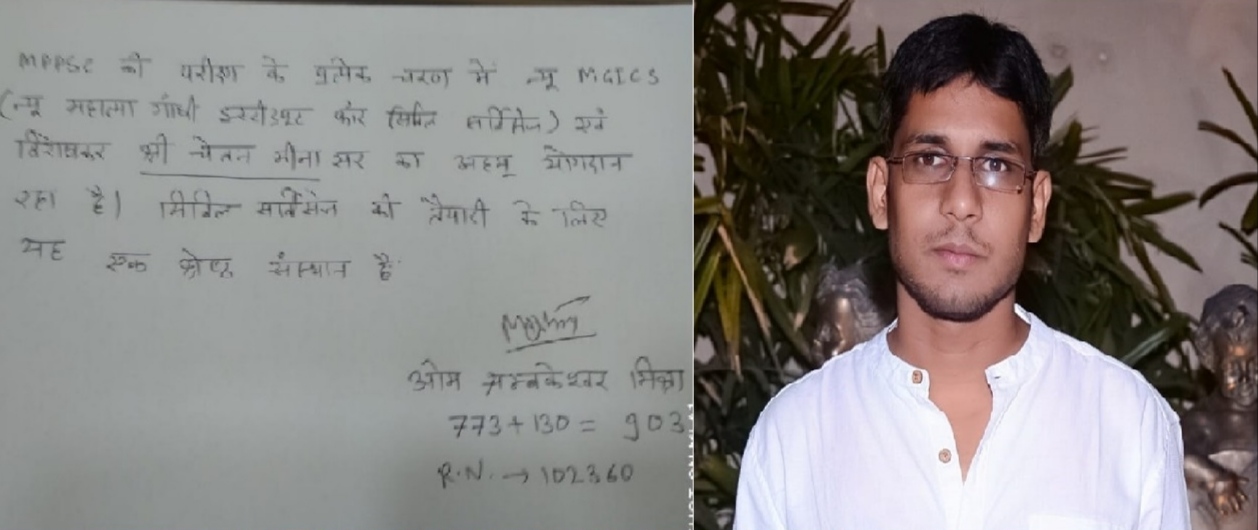 MPPSC की परीक्षा के प्रत्येक चरण में न्यू MGICS
(न्यू महात्मा गाँधी इंस्टीट्यूट फॉर सिविल सर्विसेज) एवं
विशेषकर श्री चेतन मीना सर का अहम् योगदान
रहा है। सिविल सर्विसेज की तैयारी के लिए
यह एक श्रेष्ठ संस्थान है
ओम त्रम्बकेश्वर मिश्रा
773+130 = 903
R.N. → 102360